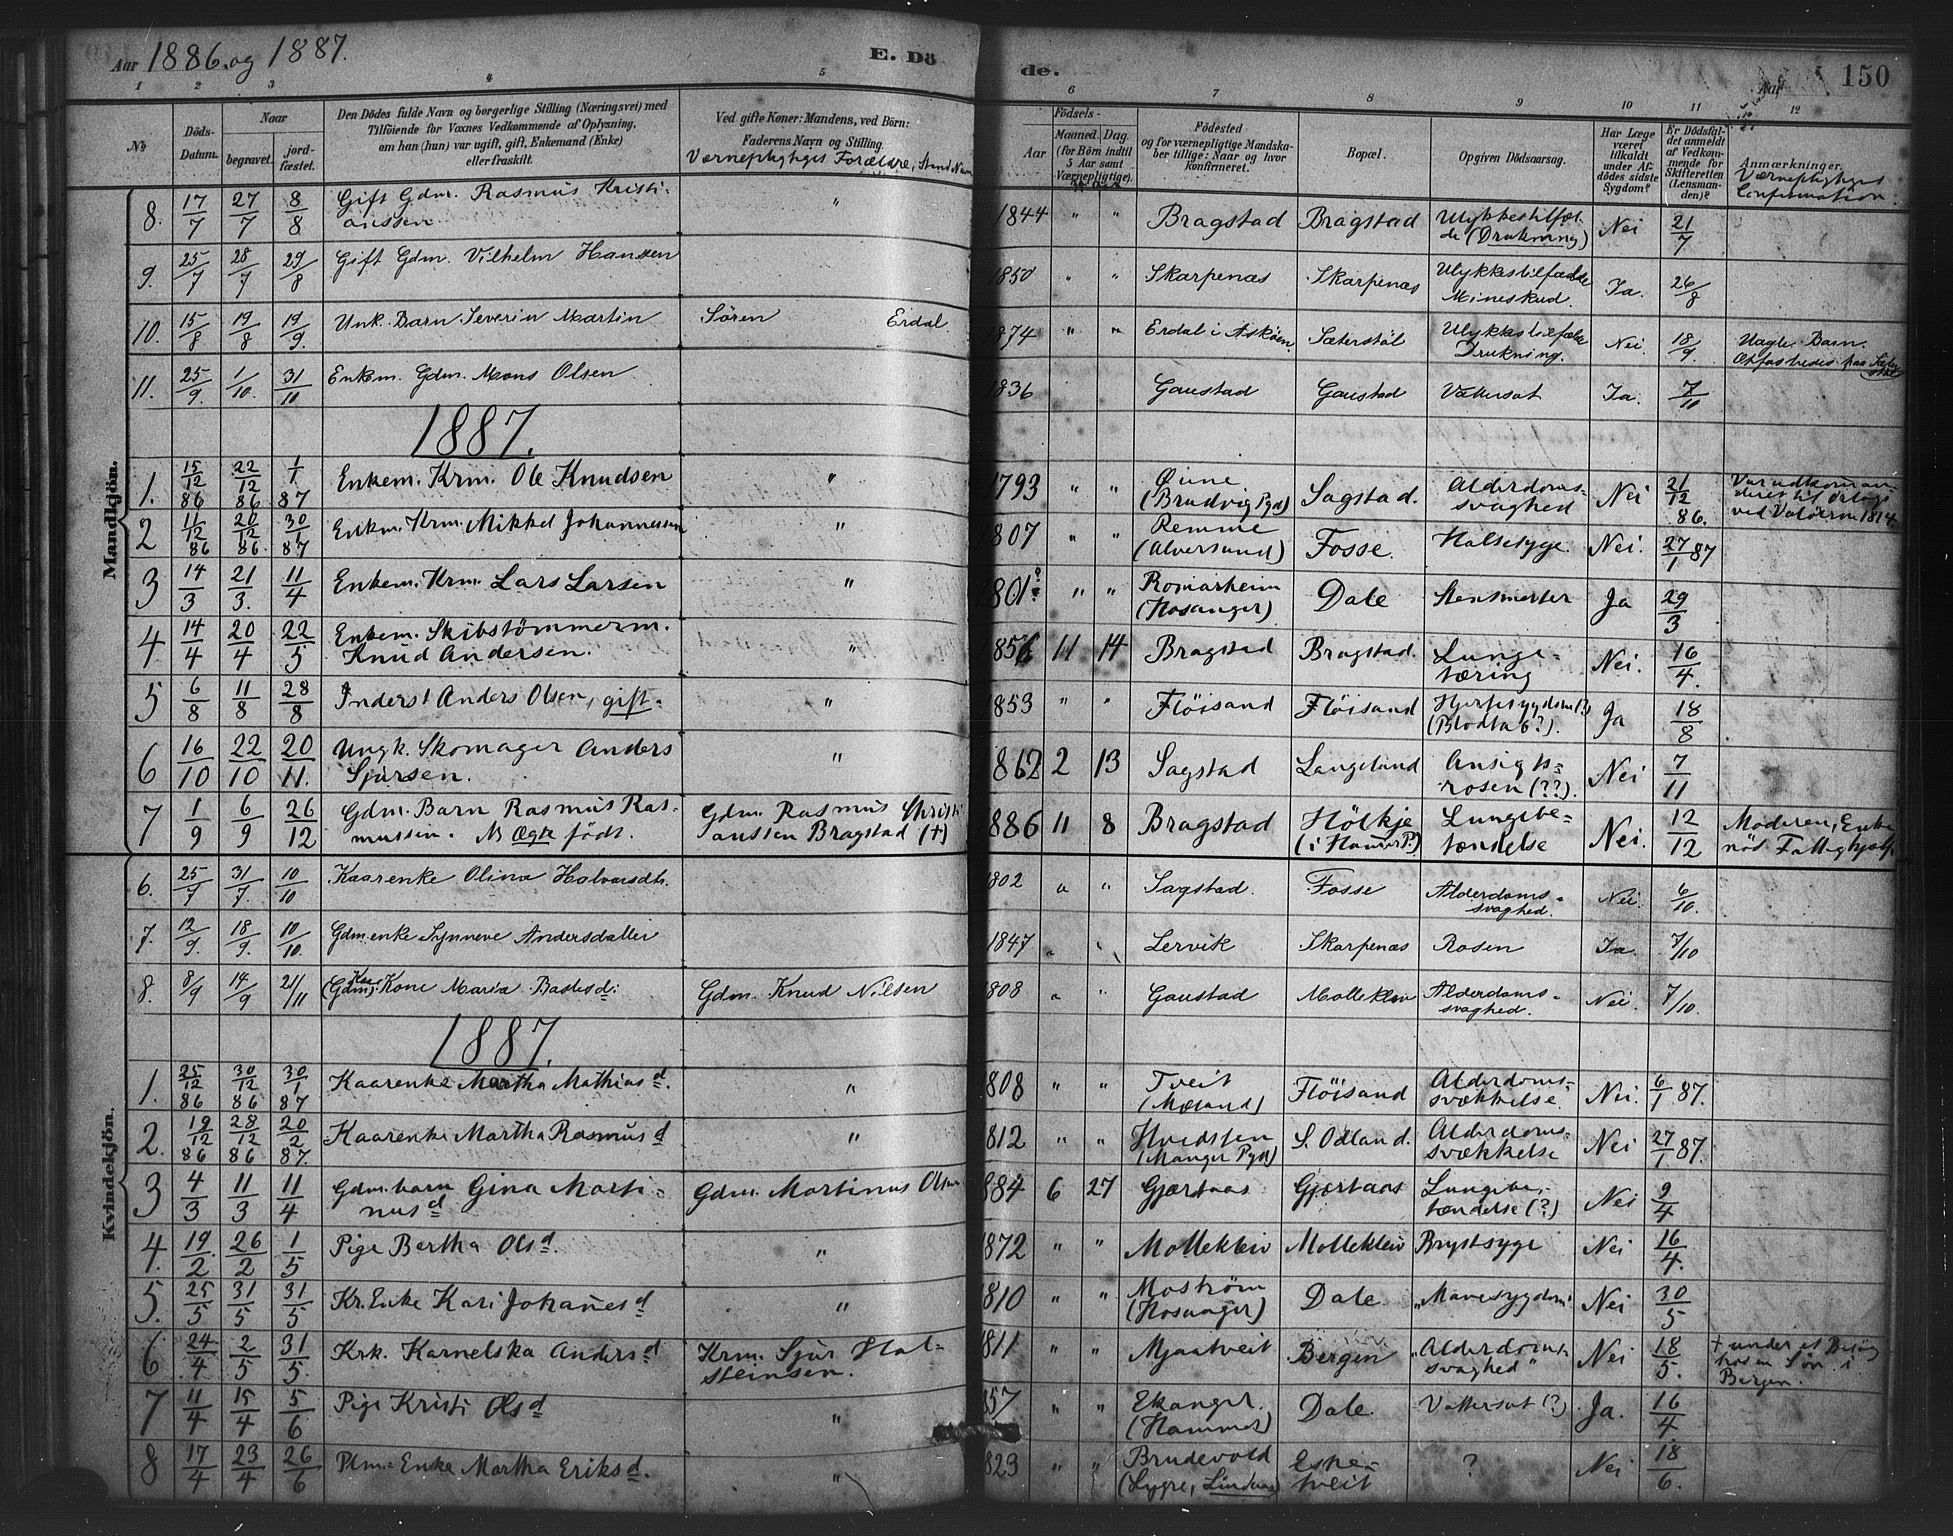 Aar 1886 og 1887.
E. Dö
de.
Aar
150
1 2 3 4 5 6 7 8 9 10 11 12
No
Döds-Datum.
Naar
begravet.
jord-fæstet.
Den Dödes fulde Navn og borgerlige Stilling (Næringsvei) med
Tilföiende for Voxnes Vedkommende af Oplysning,
om han (hun) var ugift, gift, Enkemand (Enke)
eller fraskilt.
Ved gifte Koner: Mandens, ved Börn:
Faderens Navn og Stilling.
Værnepligtiges Forældre, Stand
Födsels-
Aar
Maaned. Dag.
(for Börn indtil
5 Aar samt
Værnepligtige).
Födested
og for værnepligtige Mandska-
ber tillige: Naar og hvor
konfirmeret.
Bopæl.
Opgiven Dödsaarsag.
Har Læge
været
tilkaldt
under Af-
dödes sidste
Sygdom?
Er Dödsfal-
det anmeldt
af Vedkom-
mende for
Skifteretten
(Lensman-
den)?
Anmærkninger.
Værnepligtiges
Confirmation.
Mandkjön.
8. 17/7 27/7 8/8 Gift Gdm. Rasmus Kristi-
anssen " 1844 " " Bragstad Bragstad Ulykkestilfæl-
de (Drukning) Nei 21/7
9. 25/7 28/7 29/8 Gift Gdm. Vilhelm Hanssen 1850 " " Skarpenæs Skarpenæs Ulykkestilfælde
Mineskud. Ja. 26/8
10. 15/8 19/8 19/9. Unk. Barn Severin Martin Sören Erdal. 1874 " " Erdal i Askøen. Sæterstöl Ulykkestilfælde
Drukning. Nei. 18/9. Uægte Barn.
Opfostredes paa
11. 25/9. 1/10. 31/10 Enkem. Gdm. Mons Olsen 1836 Gaustad Gaustad Vattersot Ja. 7/10
1887.
1. 15/12 86 22/12 86 1/1 87 Enkem. Krm. Ole Knudsen " 1793 " " Øvine
(Brudvig Pgd) Sagstad. Alderdoms-
svaghed Nei 21/12 86. Var udkomman-
deret til Orlogs
ved Valöerne 1814.
2 11/12 86 20/12 86. 30/1 87 Enkm. Krm. Mikkel Johannessen " 1807 " " Remme
(Alversund) Fosse. Halsesyge. Nei. 27/1 87
3 14/3 21/3. 11/4 Enkem. Krm. Lars Larsen " 1801? " " Romarheim
(Hosanger). Dale Stensmerter Ja 29/3
4 14/4 20/4 22/5 Enkem. Skibstömmerm.
Knud Andersen. " 1856 11 14 Bragstad Bragstad. Lunge-
tæring Nei. 16/4.
5 6/8 11/8 28/8 Inderst Anders Olsen, gift. " 1853 " " Flöisand Flöisand Hjertesygdom(?)
(Blodtab?). Ja 18/8
6 16/10 22/10 20/11. Ungk. Skomager Anders
Sjursen. " 1862 2 13 Sagstad Langeland Ansigts-
rosen (??). Nei 7/11
7 1/9 6/9 26/12 Gdm. Barn Rasmus Ras-
mussen. NB Ægte födt. Gdm. Rasmus Christi
anssen Bragstad (+) 1886 11 8 Bragstad Hölkje
(i Hammer P.) Lungebe-
tændelse Nei. 12/12 Moderen, Enke
nöd Fattighjælp.
Kvindekjön.
6. 25/7 31/7. 10/10 Kaarenke Olina Halvorsdtr. 1802 " " Sagstad. Fosse Alderdoms-
svaghed. Nei. 6/10.
7. 12/9. 18/9. 10/10. Gdm.enke Synneve Andersdatter 1847 " " Lervik Skarpenæs Rosen Ja. 7/10
8. 8/9 14/9 21/11 (Gdm) Kaar Kone Maria Bastesd: Gdm. Knud Nilsen 1808 " " Gaustad Molleklev Alderdoms-
svaghed. Nei. 7/10.
1887.
1. 25/12 86 30/12 86 30/1 87 Kaarenke Martha Mathiasd. " 1808 " " Tveit
(Mæland) Flöisand Alderdoms-
svækkelse. Nei. 6/1 87.
2. 19/12 86 28/12 86 20/2 87. Kaarenke Martha Rasmusd " 1812 " " Hvidsten
(Manger Pgd) S. Odland. Alderdoms-
svækkelse Nei 27/1 87.
3 4/3 11/3 11/4 Gdm. barn Gina Marti-
nusd Gdm. Martinus Olsen 1884 6 27 Gjærtaas Gjærtaas Lungebe-
tændelse (?) Nei 9/4
4. 19./2 26/2 1/5 Pige Bertha Olsd. " 1872 " " Mollekleiv Mollekleiv Brystsyge Nei 16/4.
5. 25/5 31/5 31/5 Kr. Enke Kari Johannesd " 1810 " " Moström
(Hosanger) Dale. "Mavesygdom" Nei 30/5
6 24/4 2/5 31/5. Krk. Karnelska Andersd Krm. Sjur Hol-
steinsen. 1811 " " Mjaatveit Bergen "Alderdoms-
svaghed" Nei 18/5. + under et Besög
hos en Sön i
Bergen.
7 11/4 15/4 5/6 Pige Kristi Olsd " 1857 " " Ekanger.
(Hammer) Dale. Vattersot (?) Ja. 16/4.
8 17/4 23/4 26/6 Plm. Enke Martha Eriksd. " 1823 " " Brudevold
(Lygre, Lindaas) Eske-
tveit ? Nei 18/6.